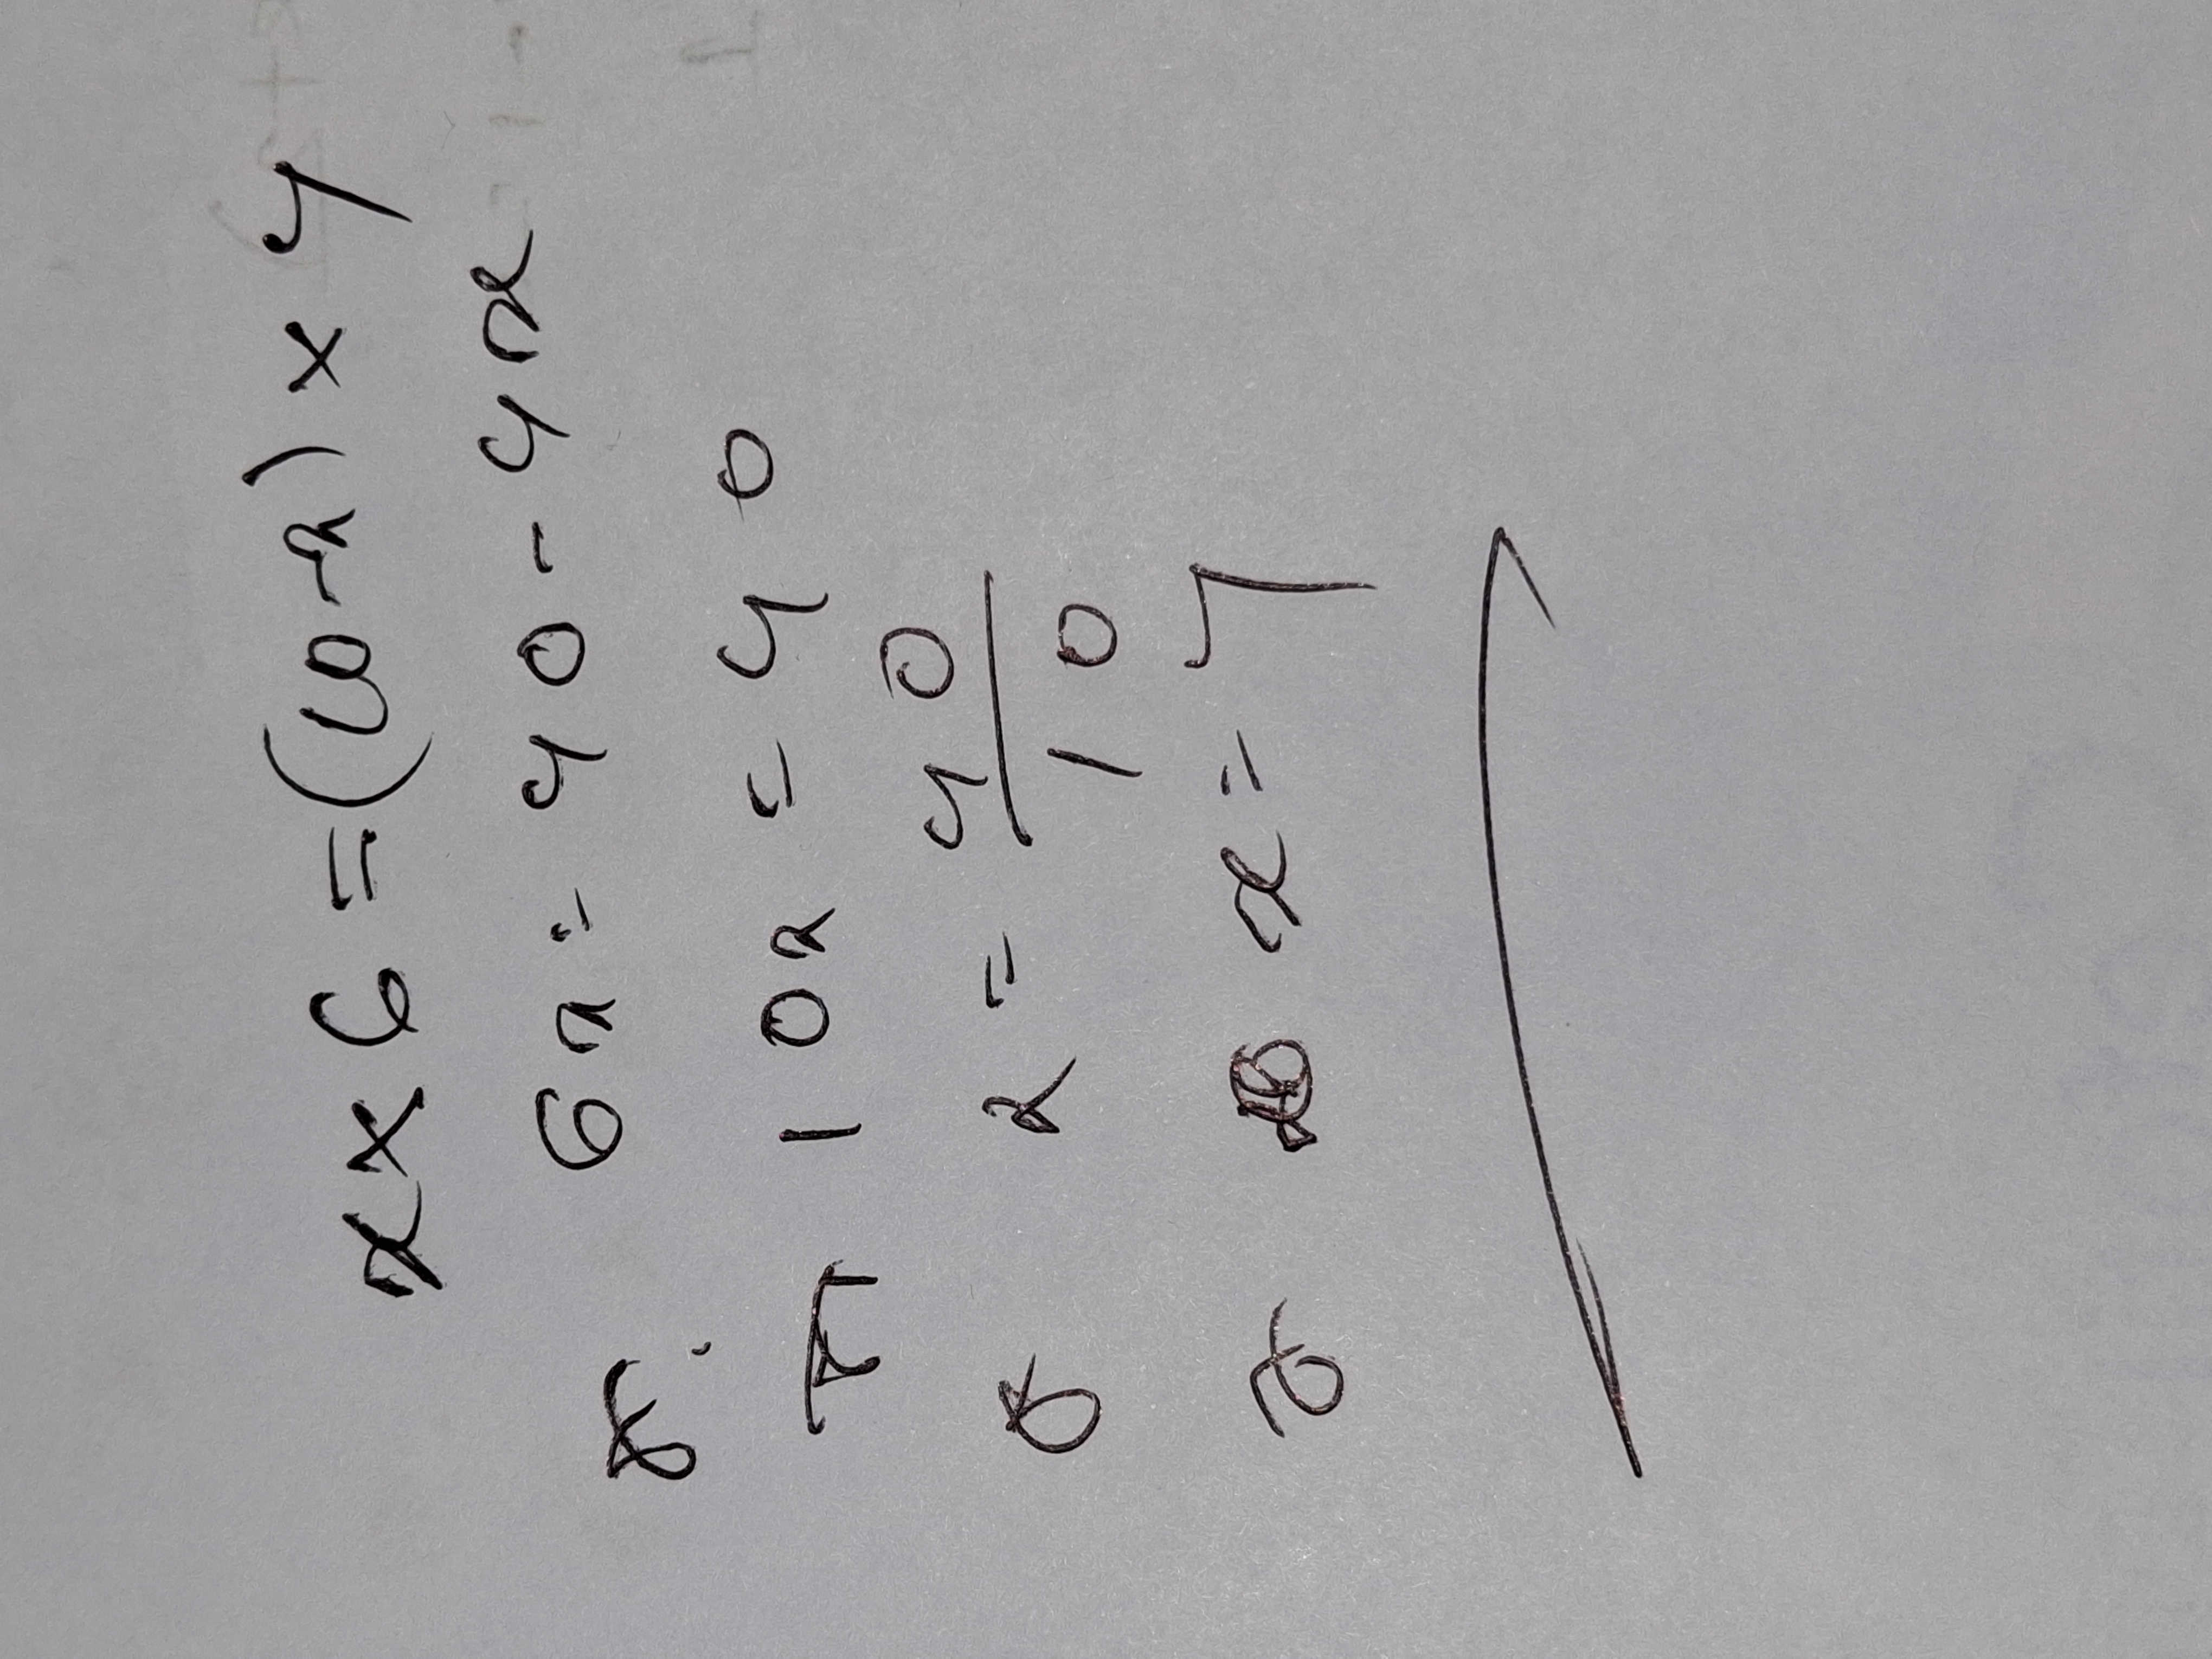 x × 6 = (10 - x) × 4
6x = 40 - 4x
10x = 40
x = 40/10
x = 4